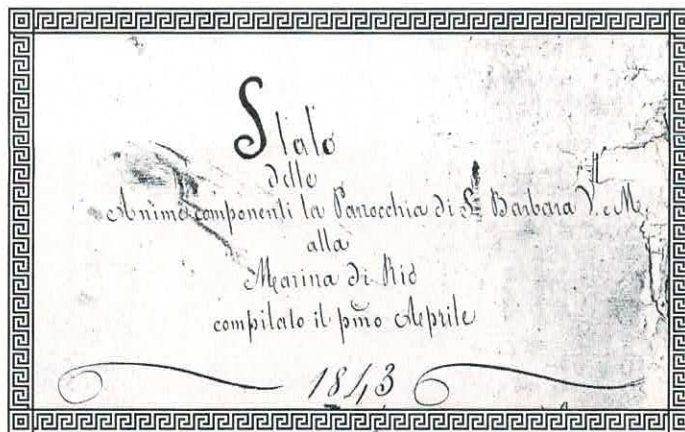 Stato
delle
Anime componenti la Parrocchia di S. Barbara V. e M.
alla
Marina di Rio
compilato il pmo Aprile
1843